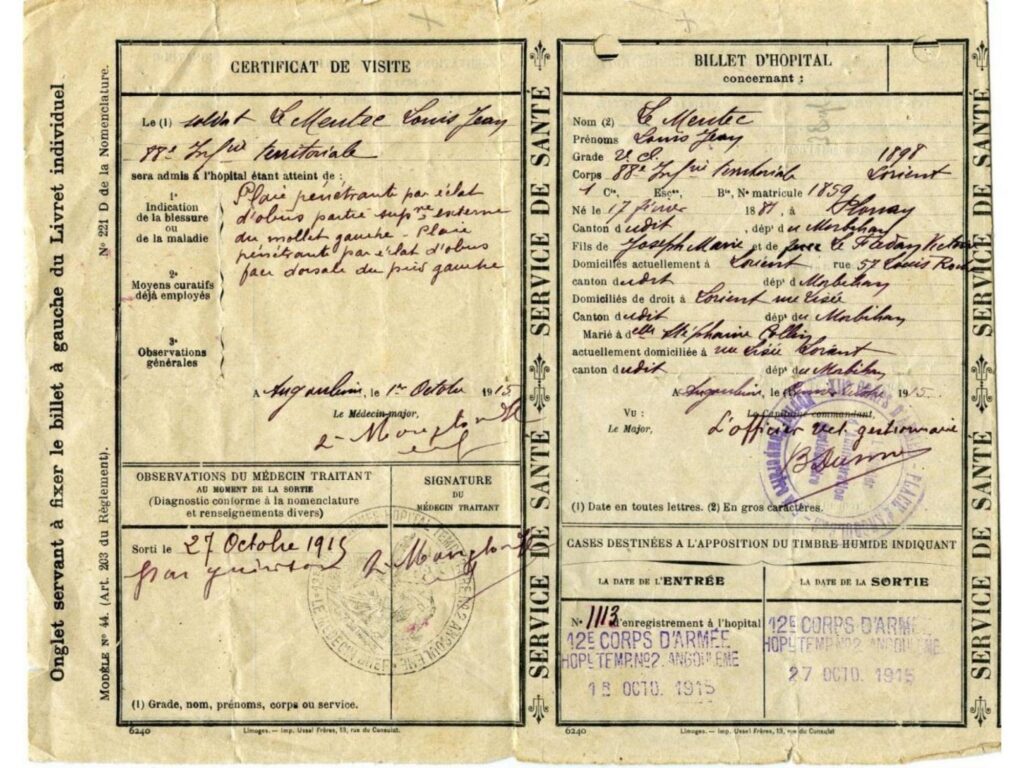 Onglet servant à fixer le billet à gauche du Livret individuel
MODÈLE No 44. (Art. 203 du Règlement).
No 221 D de la Nomenclature.
CERTIFICAT DE VISITE
Le (1) soldat Le Mentec Louis Jean
88e Infrie territoriale
sera admis à l'hôpital étant atteint de :
1o
Indication
de la blessure
ou
de la maladie
Plaie pénétrante par éclat
d'obus partie supre externe
du mollet gauche - Plaie
pénétrante par éclat d'obus
face dorsale du pied gauche
2o
Moyens curatifs
déjà employés
3o
Observations
générales
A Angoulême, le 1er Octobre 1915
Le Médecin-major,
OBSERVATIONS DU MÉDECIN TRAITANT
AU MOMENT DE LA SORTIE
(Diagnostic conforme à la nomenclature
et renseignements divers)
SIGNATURE
DU
MÉDECIN TRAITANT
Sorti le 27 Octobre 1915
par guérison
(1) Grade, nom, prénoms, corps ou service.
6240
Limoges. — Imp. Ussel Frères, 13, rue du Consulat.
SERVICE DE SANTÉ
SERVICE DE SANTÉ
BILLET D'HOPITAL
concernant :
Nom (2) Le Mentec
Prénoms Louis Jean
Grade 2e Cl. 1898
Corps 88e Infrie territoriale Lorient
1 Cie, Esc.on, Bie, No matricule 1859
Né le 17 février 1881, à Plouay
Canton dudit, dépt du Morbihan
Fils de Joseph Marie et de Le Fledan
Domiciliés actuellement à Lorient rue 57 Louis
canton dudit dépt du Morbihan
Domiciliés de droit à Lorient rue Lisée
Canton dudit dépt du Morbihan
Marié à delle Stéphanie Collin
actuellement domiciliée à rue Lisée Lorient
canton dudit dépt du Morbihan
A Angoulême, le 1915
VU :
Le Major,
Le Capitaine commandant,
L'officier gestionnaire
(1) Date en toutes lettres. (2) En gros caractères.
CASES DESTINÉES A L'APPOSITION DU TIMBRE HUMIDE INDIQUANT
LA DATE DE L'ENTRÉE
LA DATE DE LA SORTIE
No 1113 d'enregistrement à l'hôpital
12E CORPS D'ARMÉE
HOPL TEMP. No2. ANGOULEME
OCTO. 1915
12E CORPS D'ARMÉE
HOPL TEMP. No2. ANGOULEME
27 OCTO. 1915
6240
Limoges. — Imp. Ussel Frères, 13, rue du Consulat.
SERVICE DE SANTÉ
SERVICE DE SANTÉ